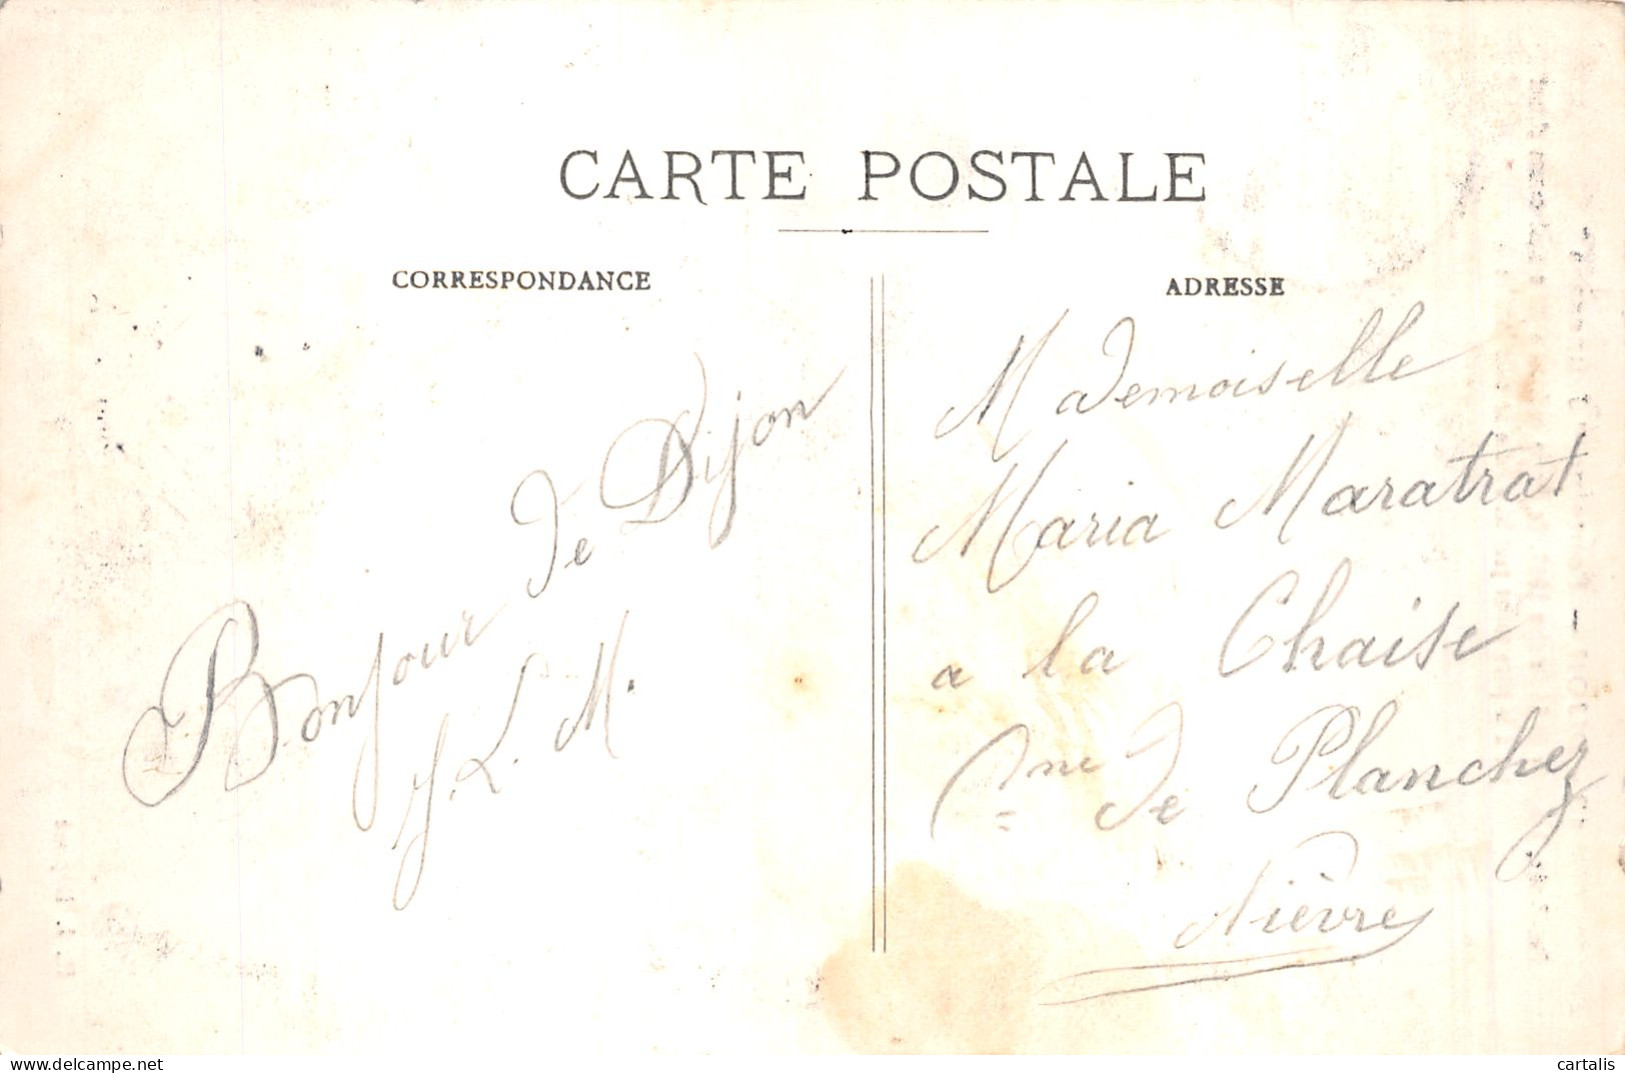 CARTE POSTALE
CORRESPONDANCE
Bonjour de Dijon
J. L. M.
ADRESSE
Mademoiselle
Maria Maratrat
a la Chaise
Cne de Planchez
Nièvre
delcampe.net
cartalis